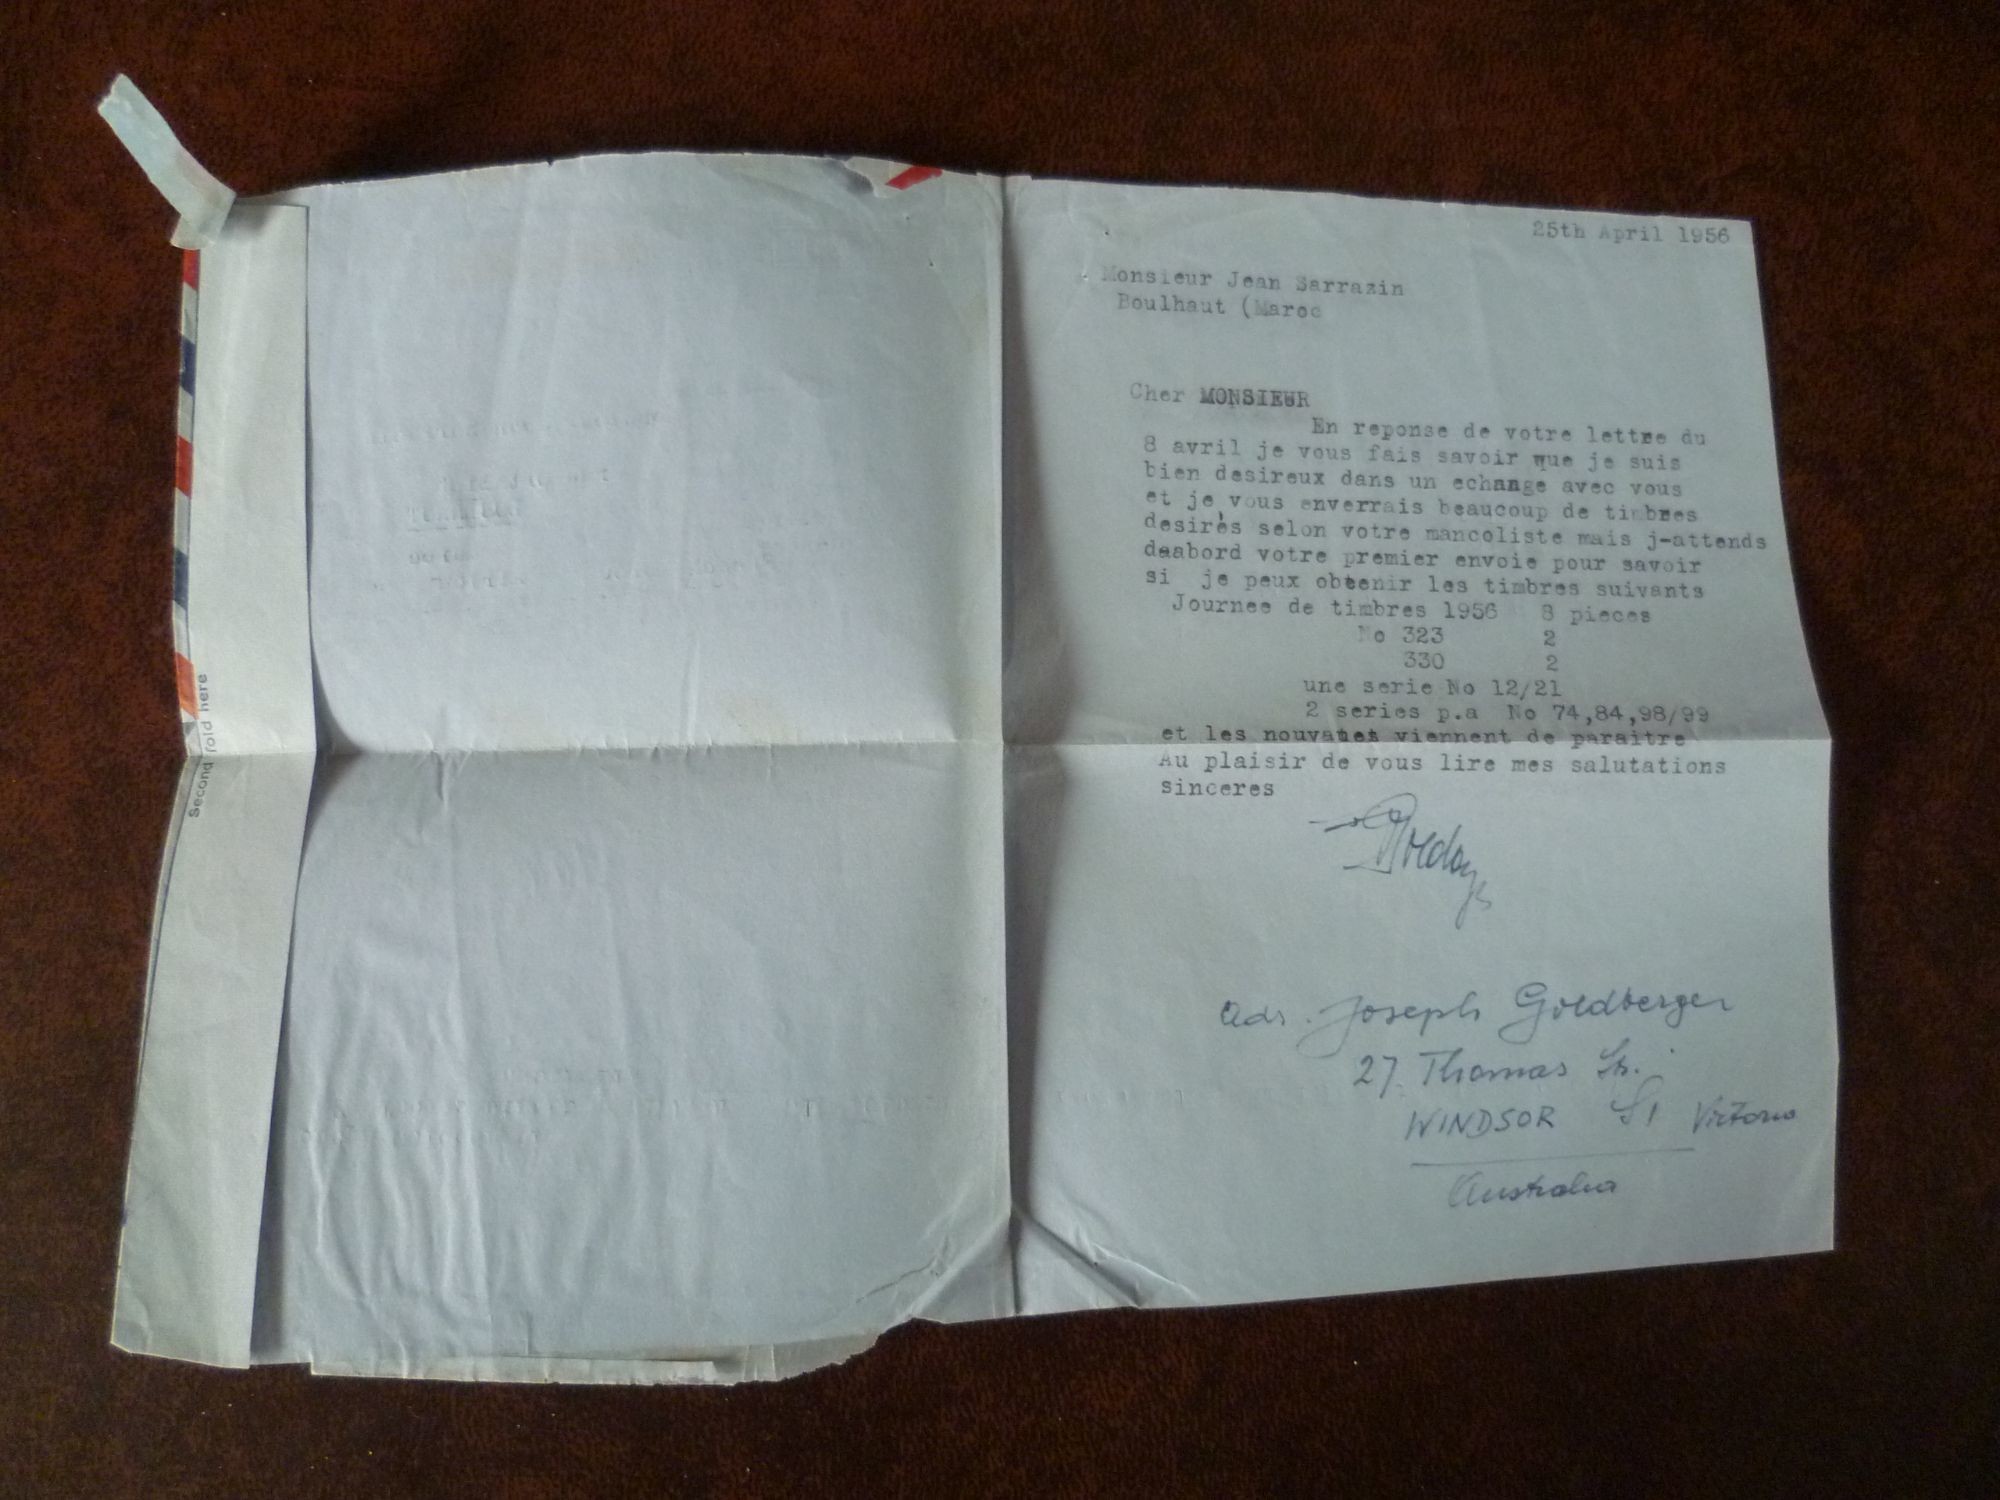 25th April 1956
Monsieur Jean Sarrazin
Boulhaut (Maroc
Cher MONSIEUR
En reponse de votre lettre du
8 avril je vous fais savoir que je suis
bien desireux dans un echange avec vous
et je vous enverrais beaucoup de timbres
desirès selon votre mancoliste mais j-attends
daabord votre premier envoie pour savoir
si je peux obtenir les timbres suivants
Journee de timbres 1956 8 pieces
No 323 2
330 2
une serie No 12/21
2 series p.a No 74,84,98/99
et les viennent de paraitre
Au plaisir de vous lire mes salutations
sinceres
adr. Joseph Goldberger
27 Thomas St.
WINDSOR S1 Victoria
Australia
Second fold here